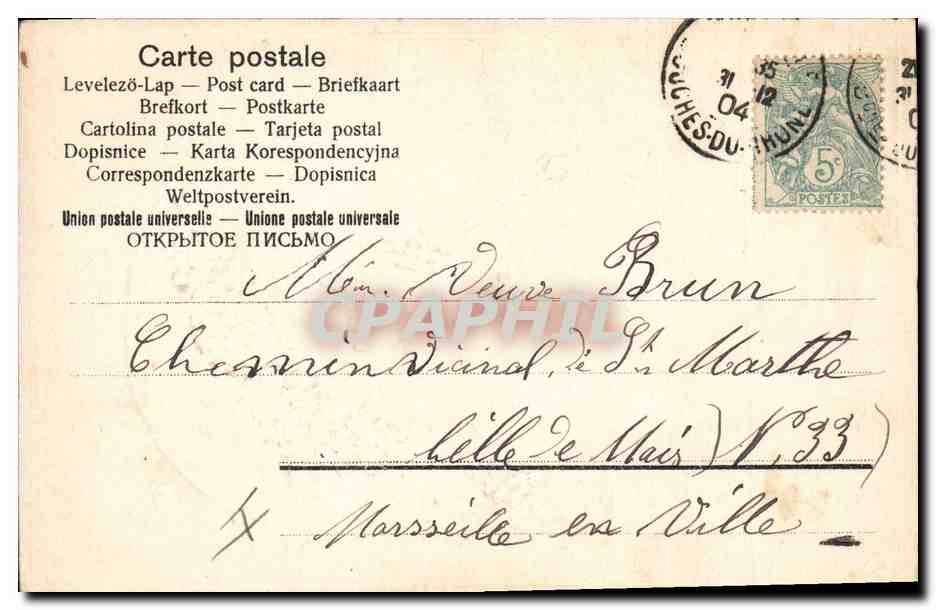 Carte postale
Levelezö-Lap — Post card — Briefkaart
Brefkort — Postkarte
Cartolina postale — Tarjeta postal
Dopisnice — Karta Korespondencyjna
Correspondenzkarte — Dopisnica
Weltpostverein.
Union postale universelle — Unione postale universale
ОТКРЫТОЕ ПИСЬМО
35
31 12
04
BOUCHES-DU-RHONE
5c
POSTES
31
Veuve Brun
Chemin Vicinal, de St Marthe
Belle de Mai) N. 33)
Marsseille en Ville
CPAPHIL